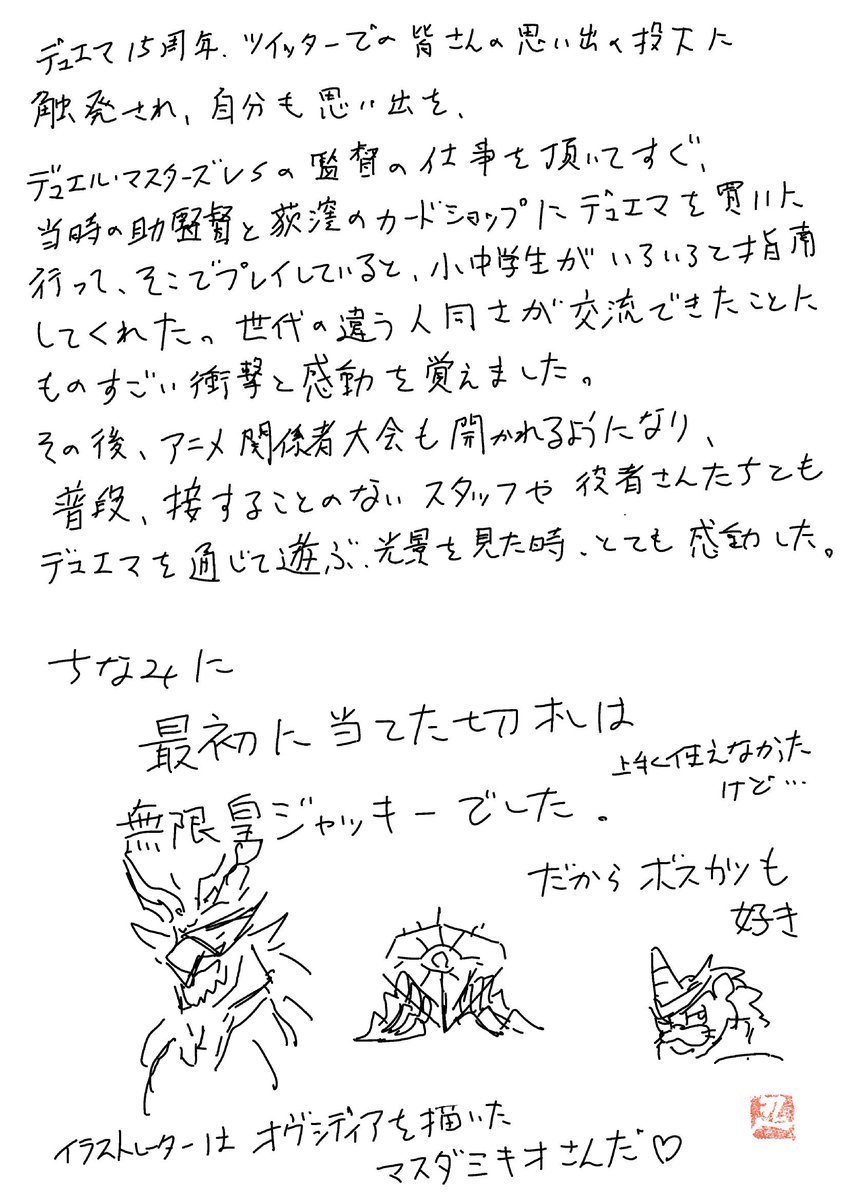 デュエマ15周年、ツイッターでの皆さんの思い出の投下に
触発され、自分も思い出を、
デュエル・マスターズVSの監督の仕事を頂いてすぐ、
当時の助監督と荻窪のカードショップにデュエマを買いに
行って、そこでプレイしていると、小中学生がいろいろと指南
してくれた。世代の違う人同士が交流できたことに
ものすごい衝撃と感動を覚えました。
その後、アニメ関係者大会も開かれるようになり、
普段、接することのないスタッフや役者さんたちとも
デュエマを通じて遊ぶ、光景を見た時、とても感動した。
ちなみに
最初に当てた切札は
無限皇ジャッキーでした。
上手く使えなかった
けど…
だからボスカツも
好き
イラストレーターはオヴシディアを描いた
マスダミキオさんだ♡